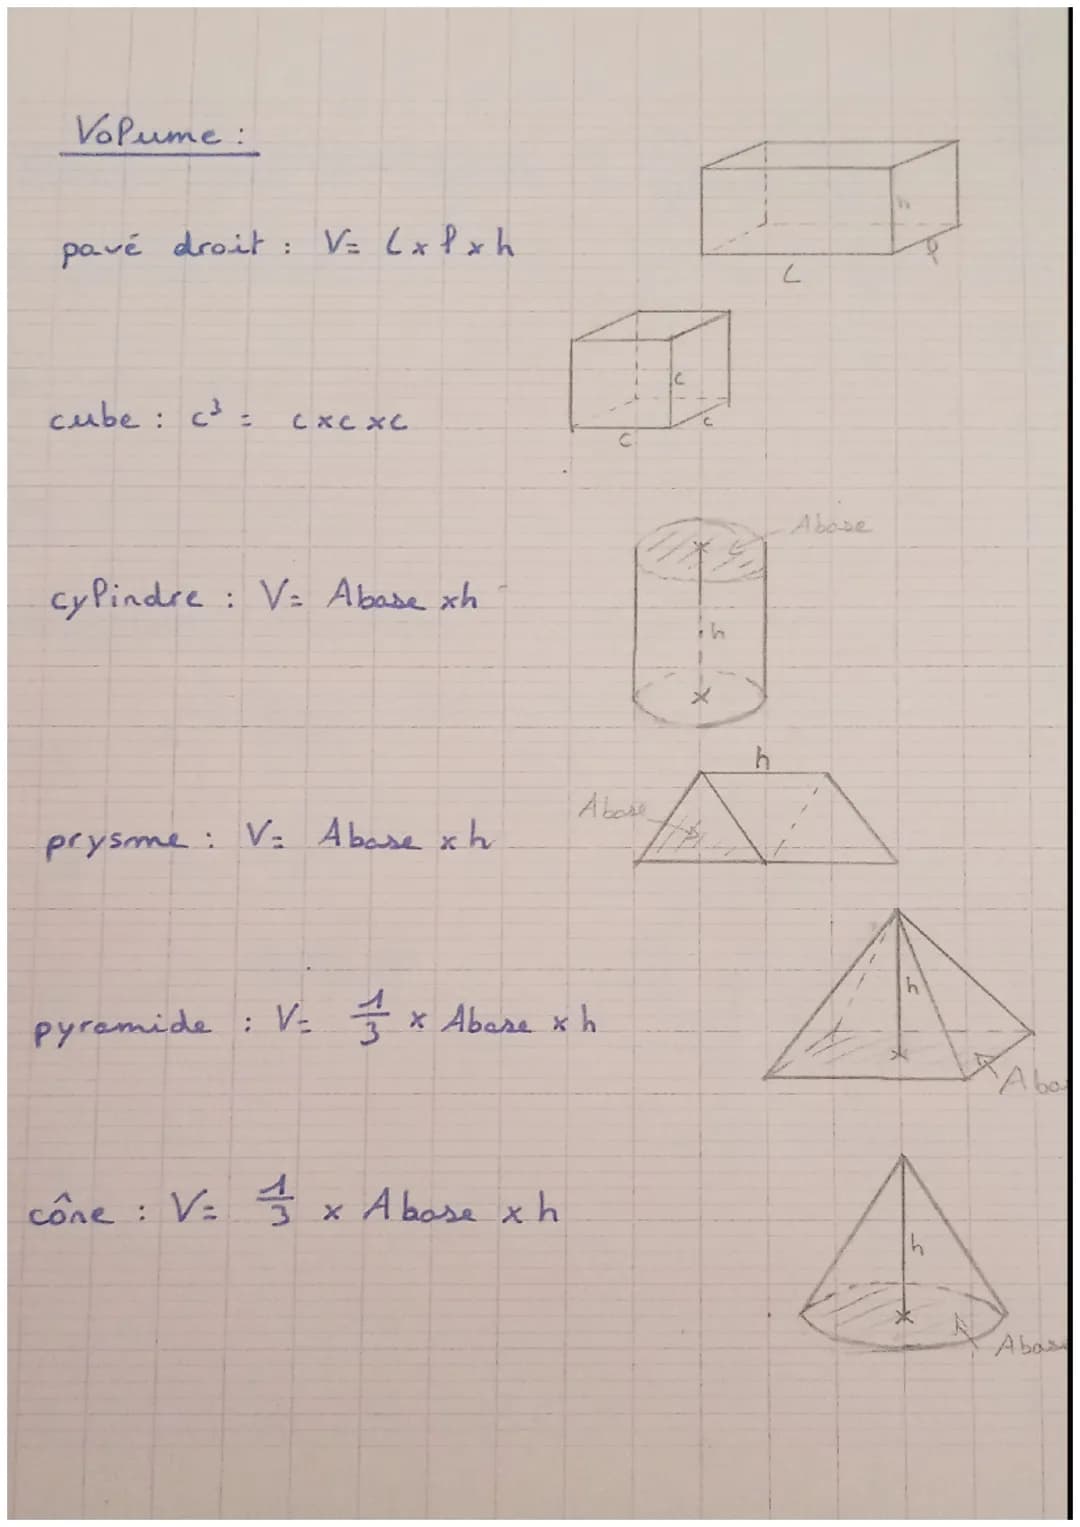 Volume :
pavé droit : V= L x l x h
h
l
L
cube : c³ = c x c x c
c
c
c
Abase
cylindre : V= Abase x h
h
h
Abase
prysme : V= Abase x h
h
pyramide : V= 1/3 x Abase x h
Aba
cône : V= 1/3 x Abase x h
h
Abase